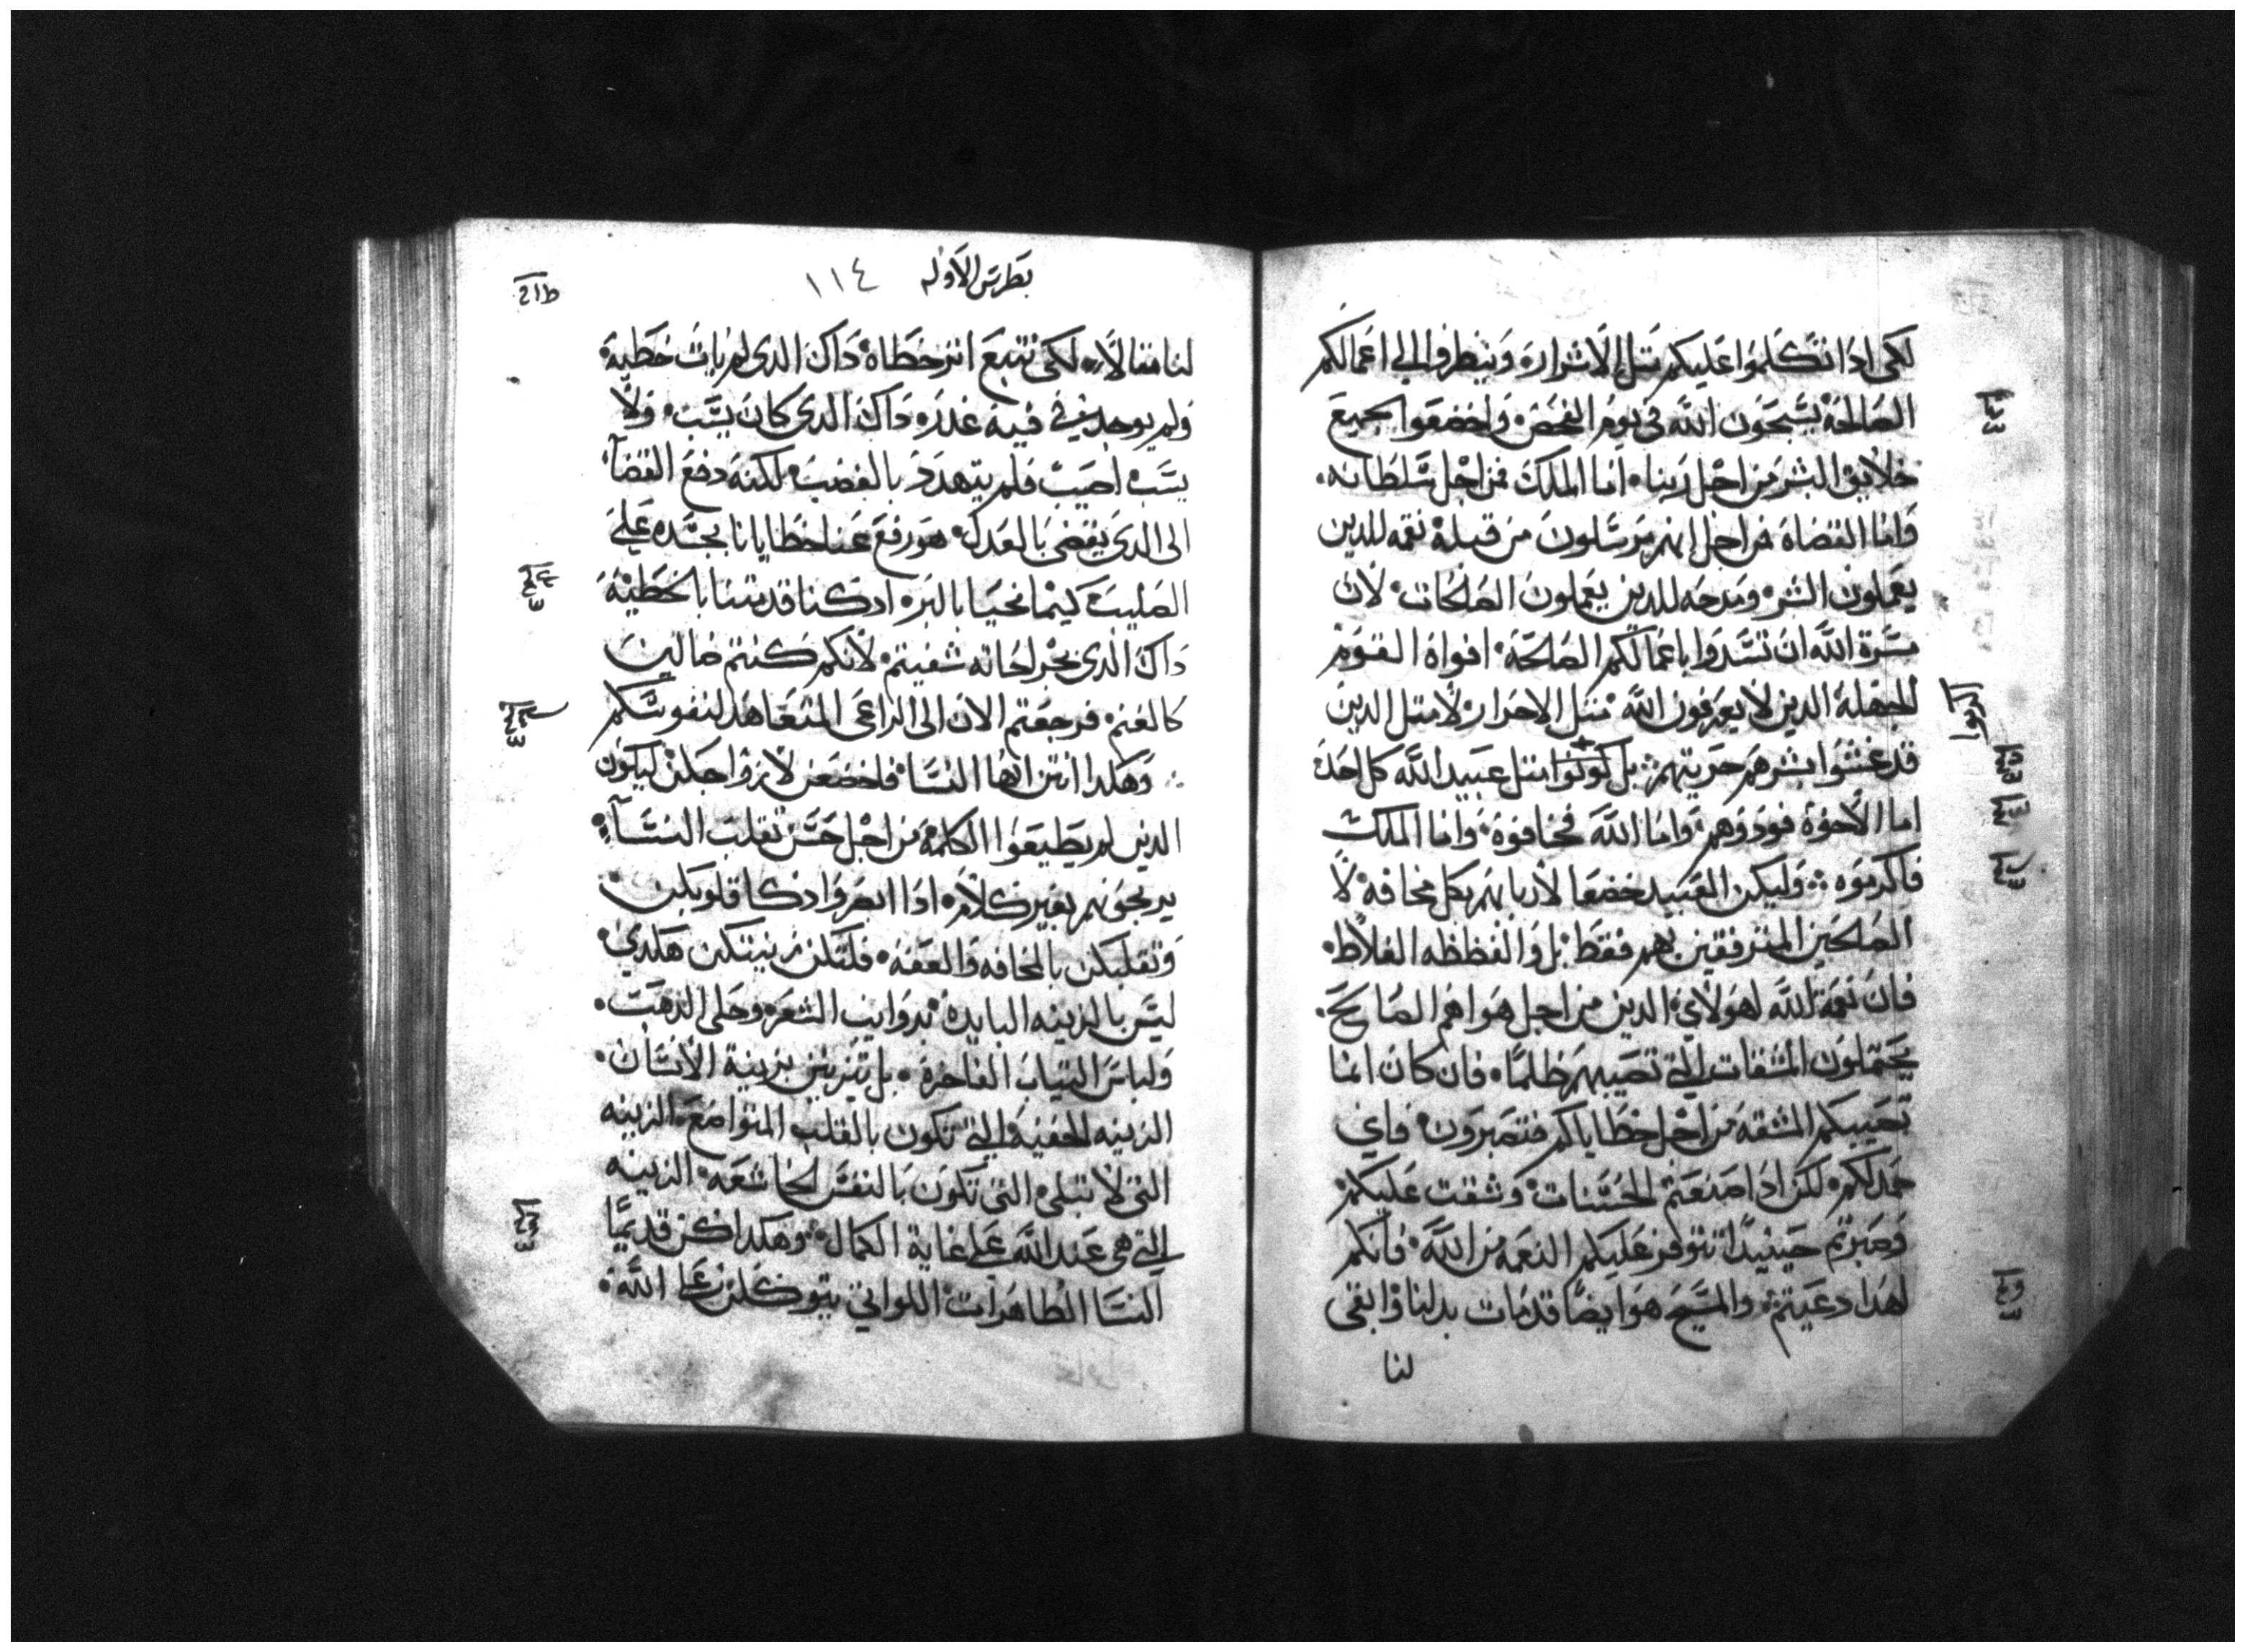 لكى ادا تتكلموا عليكم مثل الاشرار وينظروا الى اعمالكم
الصالحة يسبحون الله في يوم الفحص واخضعوا لجميع
خلايق البشر من اجل ربنا اما الملك فمن اجل سلطانه
واما القضاة فمن اجل انهم مرسلون من قبله نقمه للدين
يعملون الشر ومدحه للدين يعملون الصالحات لان
مسرة الله ان تسدوا باعمالكم الصالحة افواه القوم
الجهلة الدين لا يعرفون الله مثل الاحرار لا مثل الدين
قد غشوا بشرهم حريتهم بل كونوا مثل عبيد الله كل احد
اما الاخوة فودوهم واما الله فخافوه واما الملك
فاكرموه وليكن العبيد خضعا لاربابهم بكل مخافه لا
الصالحين المترفقين بهم فقط بل والفظظه الغلاظ
فان نعمة الله لهولاي الدين من اجل هواهم الصالح
يحتملون المشقات التي تصيبهم ظلما فان كان انما
تصيبكم المشقة من اجل خطاياكم فتصبرون فاي
حمد لكم لكن ادا صنعتم الحسنات وشقت عليكم
وصبرتم حينيدا تتوفر عليكم النعمه من الله فانكم
لهدا دعيتم والمسيح هو ايضا قد مات بدلنا وابقى
لنا
بطرس الاوله ١١٤
لنا مثالا لكى نتبع اثر خطاه داك الدى لم يات خطية
ولم يوجد في فيه غدر داك الدى كان يسب ولا
يسب اصيب فلم يتهدد بالغضب لكنه دفع القضا
الى الدى يقضى بالعدل هو رفع عنا خطايانا بجسده على
الصليب كيما نحيا بالبر ادكنا قد متنا بالخطية
داك الدى بجراحاته شفيتم لانكم كنتم ضالين
كالغنم فرجعتم الان الى الراعى المتعاهد لنفوسكم
وهكدا انتن ايها النسا فاخضعن لازواجكن ليكون
الدين لم يطيعوا الكلمة من اجل حسن تقلب النسا
يربحونهم بغير كلام ادا ابصروا ادكا قلوبكن
وتقلبكن بالمخافه والعفه فلتكن زينتكن هكدى
ليس بالزينه البايده بدوايب الشعر وحلى الدهب
ولباس الثياب الفاخرة بل يتزين بزينة الانسان
الزينه الخفية التي تكون بالقلب المتواضع الزينه
التى لا تبلى التى تكون بالنفس الخاشعه الزينه
التي هى عند الله على غاية الكمال وهكدا كن قديما
النسا الطاهرات اللواتي يتوكلن على الله